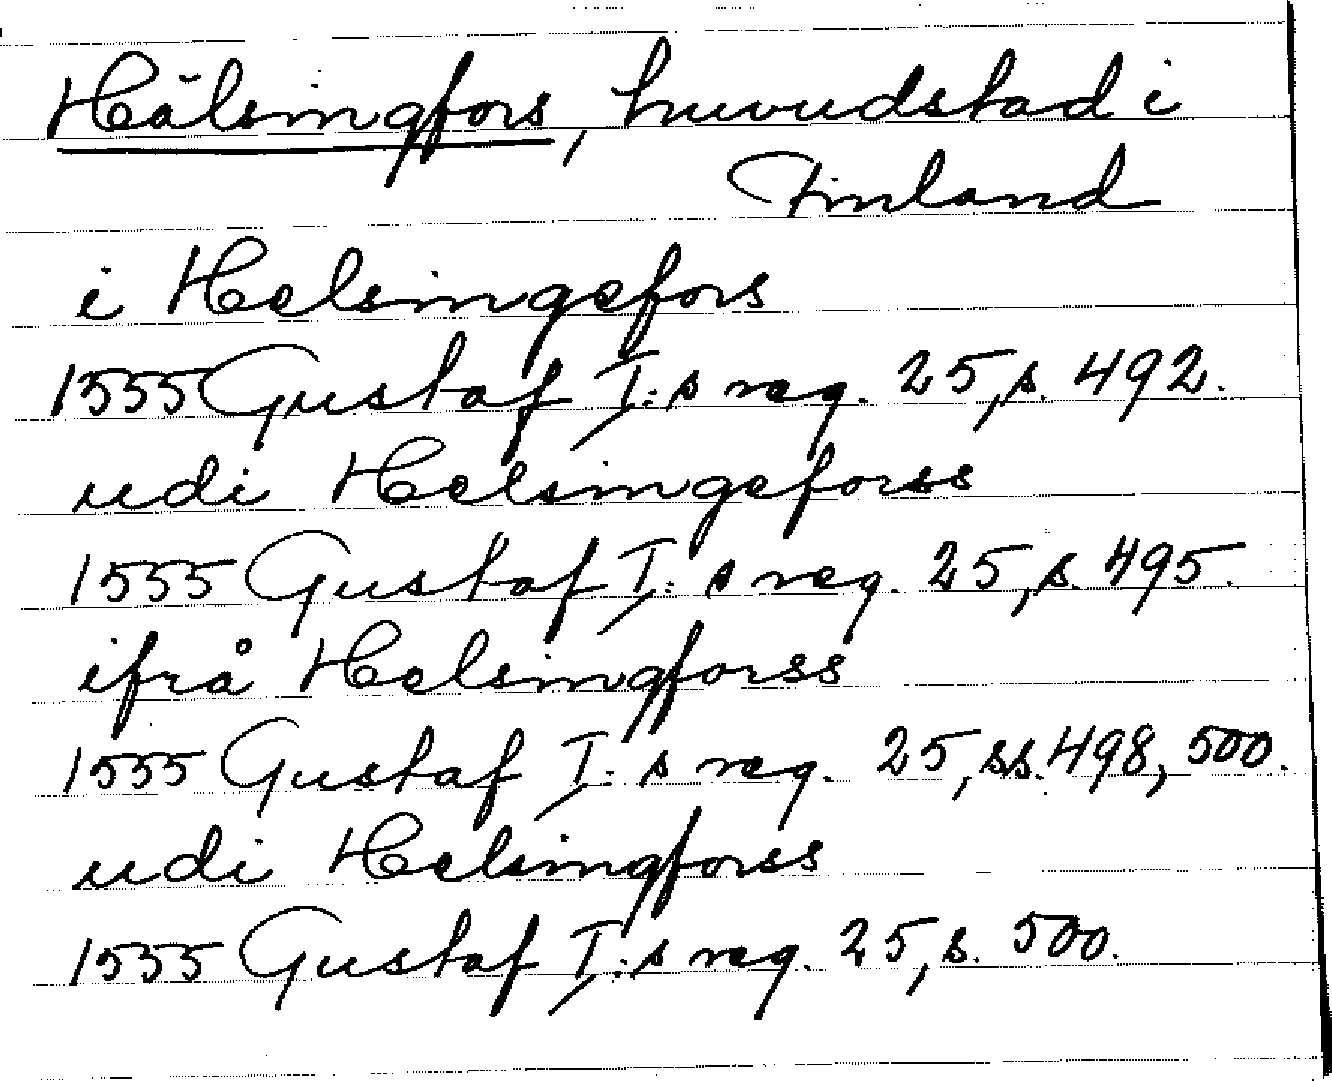 Hälsingfors, huvudstad i
Finland
i Helsingefors
1555 Gustaf I:s reg. 25, s. 492.
udi Helsingeforss
1555 Gustaf I:s reg. 25, s. 495.
ifrå Helsingforss
1555 Gustaf I:s reg. 25, ss. 498, 500.
udi Helsingforss
1555 Gustaf I:s reg. 25, s. 500.